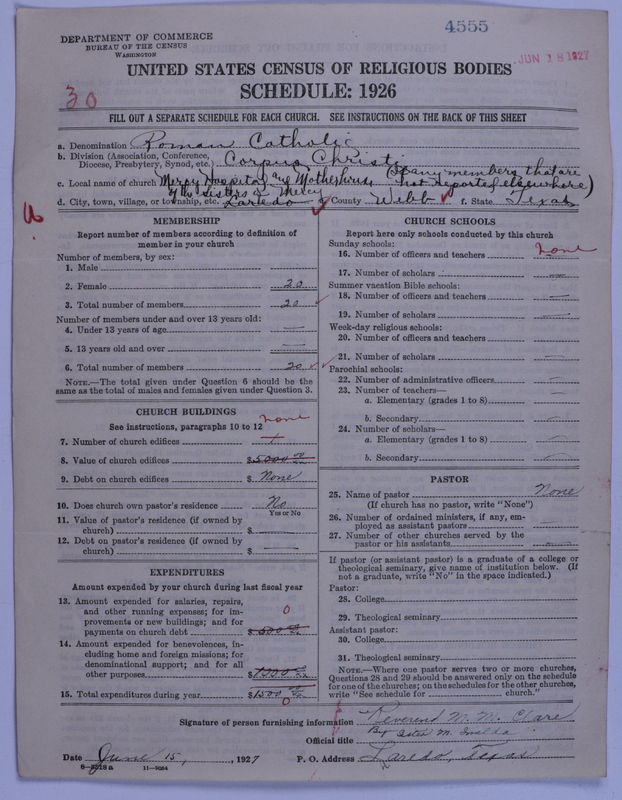 4555
DEPARTMENT OF COMMERCE
BUREAU OF THE CENSUS
WASHINGTON
JUN 18 1927
UNITED STATES CENSUS OF RELIGIOUS BODIES
SCHEDULE: 1926
30
FILL OUT A SEPARATE SCHEDULE FOR EACH CHURCH. SEE INSTRUCTIONS ON THE BACK OF THIS SHEET
a. Denomination Roman Catholic
b. Division (Association, Conference, Diocese, Presbytery, Synod, etc.) Corpus Christi
c. Local name of church Mercy Hospital and Motherhouse (If any members that are
of the Sisters of Mercy not reported elsewhere)
d. City, town, village, or township, etc. Laredo e. County Webb f. State Texas
MEMBERSHIP
Report number of members according to definition of
member in your church
Number of members, by sex:
1. Male
2. Female 20
3. Total number of members 20
Number of members under and over 13 years old:
4. Under 13 years of age —
5. 13 years old and over —
6. Total number of members 20
NOTE.—The total given under Question 6 should be
same as the total of males and females given under Question 3.
CHURCH BUILDINGS
See instructions, paragraphs 10 to 12 none
7. Number of church edifices 1
8. Value of church edifices $5000
9. Debt on church edifices $ None
10. Does church own pastor's residence No
Yes or No
11. Value of pastor's residence (if owned by
church) $ —
12. Debt on pastor's residence (if owned by
church) $ —
EXPENDITURES
Amount expended by your church during last fiscal year
13. Amount expended for salaries, repairs,
and other running expenses; for im-
provements or new buildings; and for
payments on church debt $500 0
14. Amount expended for benevolences, in-
cluding home and foreign missions; for
denominational support; and for all
other purposes $1000
15. Total expenditures during year $1500
0
CHURCH SCHOOLS
Report here only schools conducted by this church
Sunday schools:
16. Number of officers and teachers none
17. Number of scholars —
Summer vacation Bible schools:
18. Number of officers and teachers —
19. Number of scholars —
Week-day religious schools:
20. Number of officers and teachers
21. Number of scholars —
Parochial schools:
22. Number of administrative officers —
23. Number of teachers—
a. Elementary (grades 1 to 8) —
b. Secondary —
24. Number of scholars—
a. Elementary (grades 1 to 8) —
b. Secondary —
PASTOR
25. Name of pastor None
(If church has no pastor, write "None")
26. Number of ordained ministers, if any, em-
ployed as assistant pastors
27. Number of other churches served by the
pastor or his assistants
If pastor (or assistant pastor) is a graduate of a college or
theological seminary, give name of institution below. (If
not a graduate, write "No" in the space indicated.)
Pastor:
28. College
29. Theological seminary
Assistant pastor:
30. College
31. Theological seminary
NOTE.—Where one pastor serves two or more churches,
Questions 28 and 29 should be answered only on the schedule
for one of the churches; on the schedules for the other churches,
write "See schedule for church."
Signature of person furnishing information Reverend M. M. Clare
By Sister M. Imelda
Official title
Date June 15, 1927 P. O. Address Laredo, Texas
6—2518a 11—9064